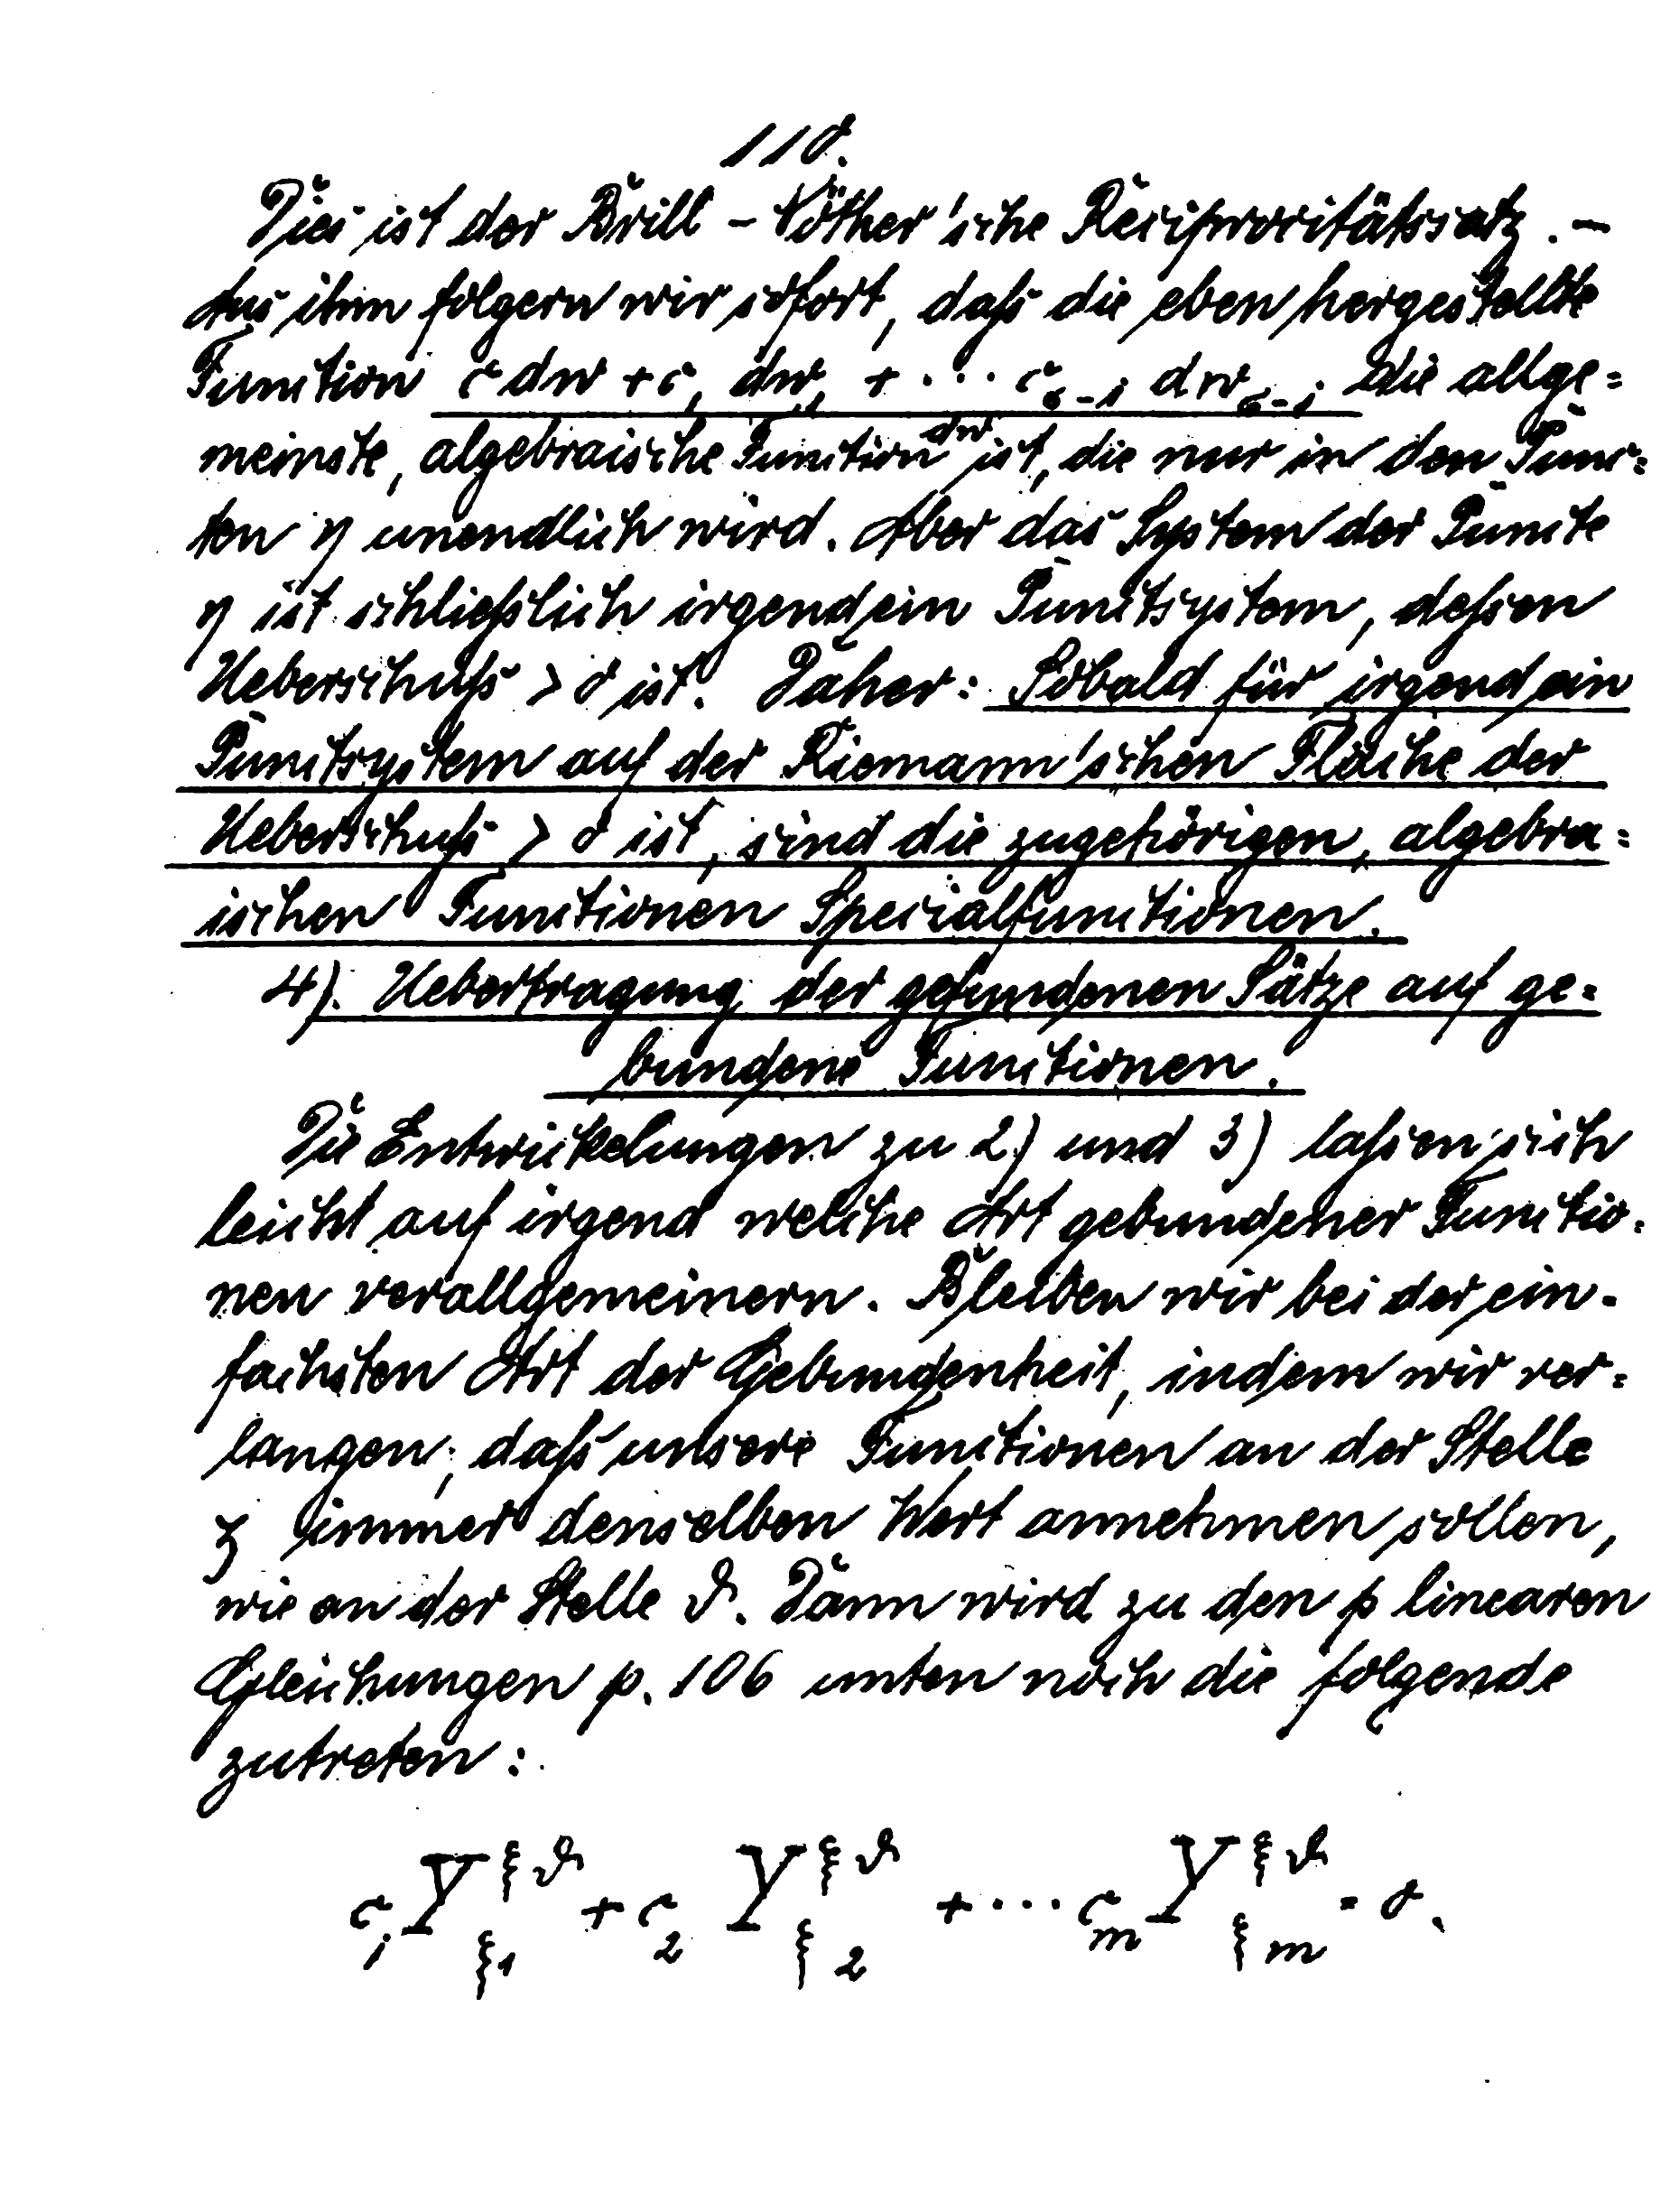 110.
Dies ist der Brill-Nöther'sche Reciprocitätssatz. -
Aus ihm folgern wir sofort, daß die eben hergestellte
Function c dw + c, dw, + ... c_{σ-1} dw_{σ-1} : dw die allge=
meinste, algebraische Function ist, die nur in den Punc=
ten η unendlich wird. Aber das System der Puncte
η ist schließlich irgend ein Punctsystem, deßen
Ueberschuß > 0 ist. Daher: Sobald für irgend ein
Punctsystem auf der Riemann'schen Fläche der
Ueberschuß > 0 ist, sind die zugehörigen, algebra=
ischen Functionen Specialfunctionen.
4). Uebertragung der gefundenen Sätze auf ge=
bundene Functionen.
Die Entwickelungen zu 2) und 3) laßen sich
leicht auf irgend welche Art gebundener Functio=
nen verallgemeinern. Bleiben wir bei der ein=
fachsten Art der Gebundenheit, indem wir ver=
langen, daß unsere Functionen an der Stelle
ζ immer denselben Wert annehmen sollen,
wie an der Stelle ϑ. Dann wird zu den p linearen
Gleichungen p. 106 unten noch die folgende
zutreten:
c_1 Y^{ξϑ}_{ξ1} + c_2 Y^{ξϑ}_{ξ2} + ... c_m Y^{ξϑ}_{ξm} = 0.